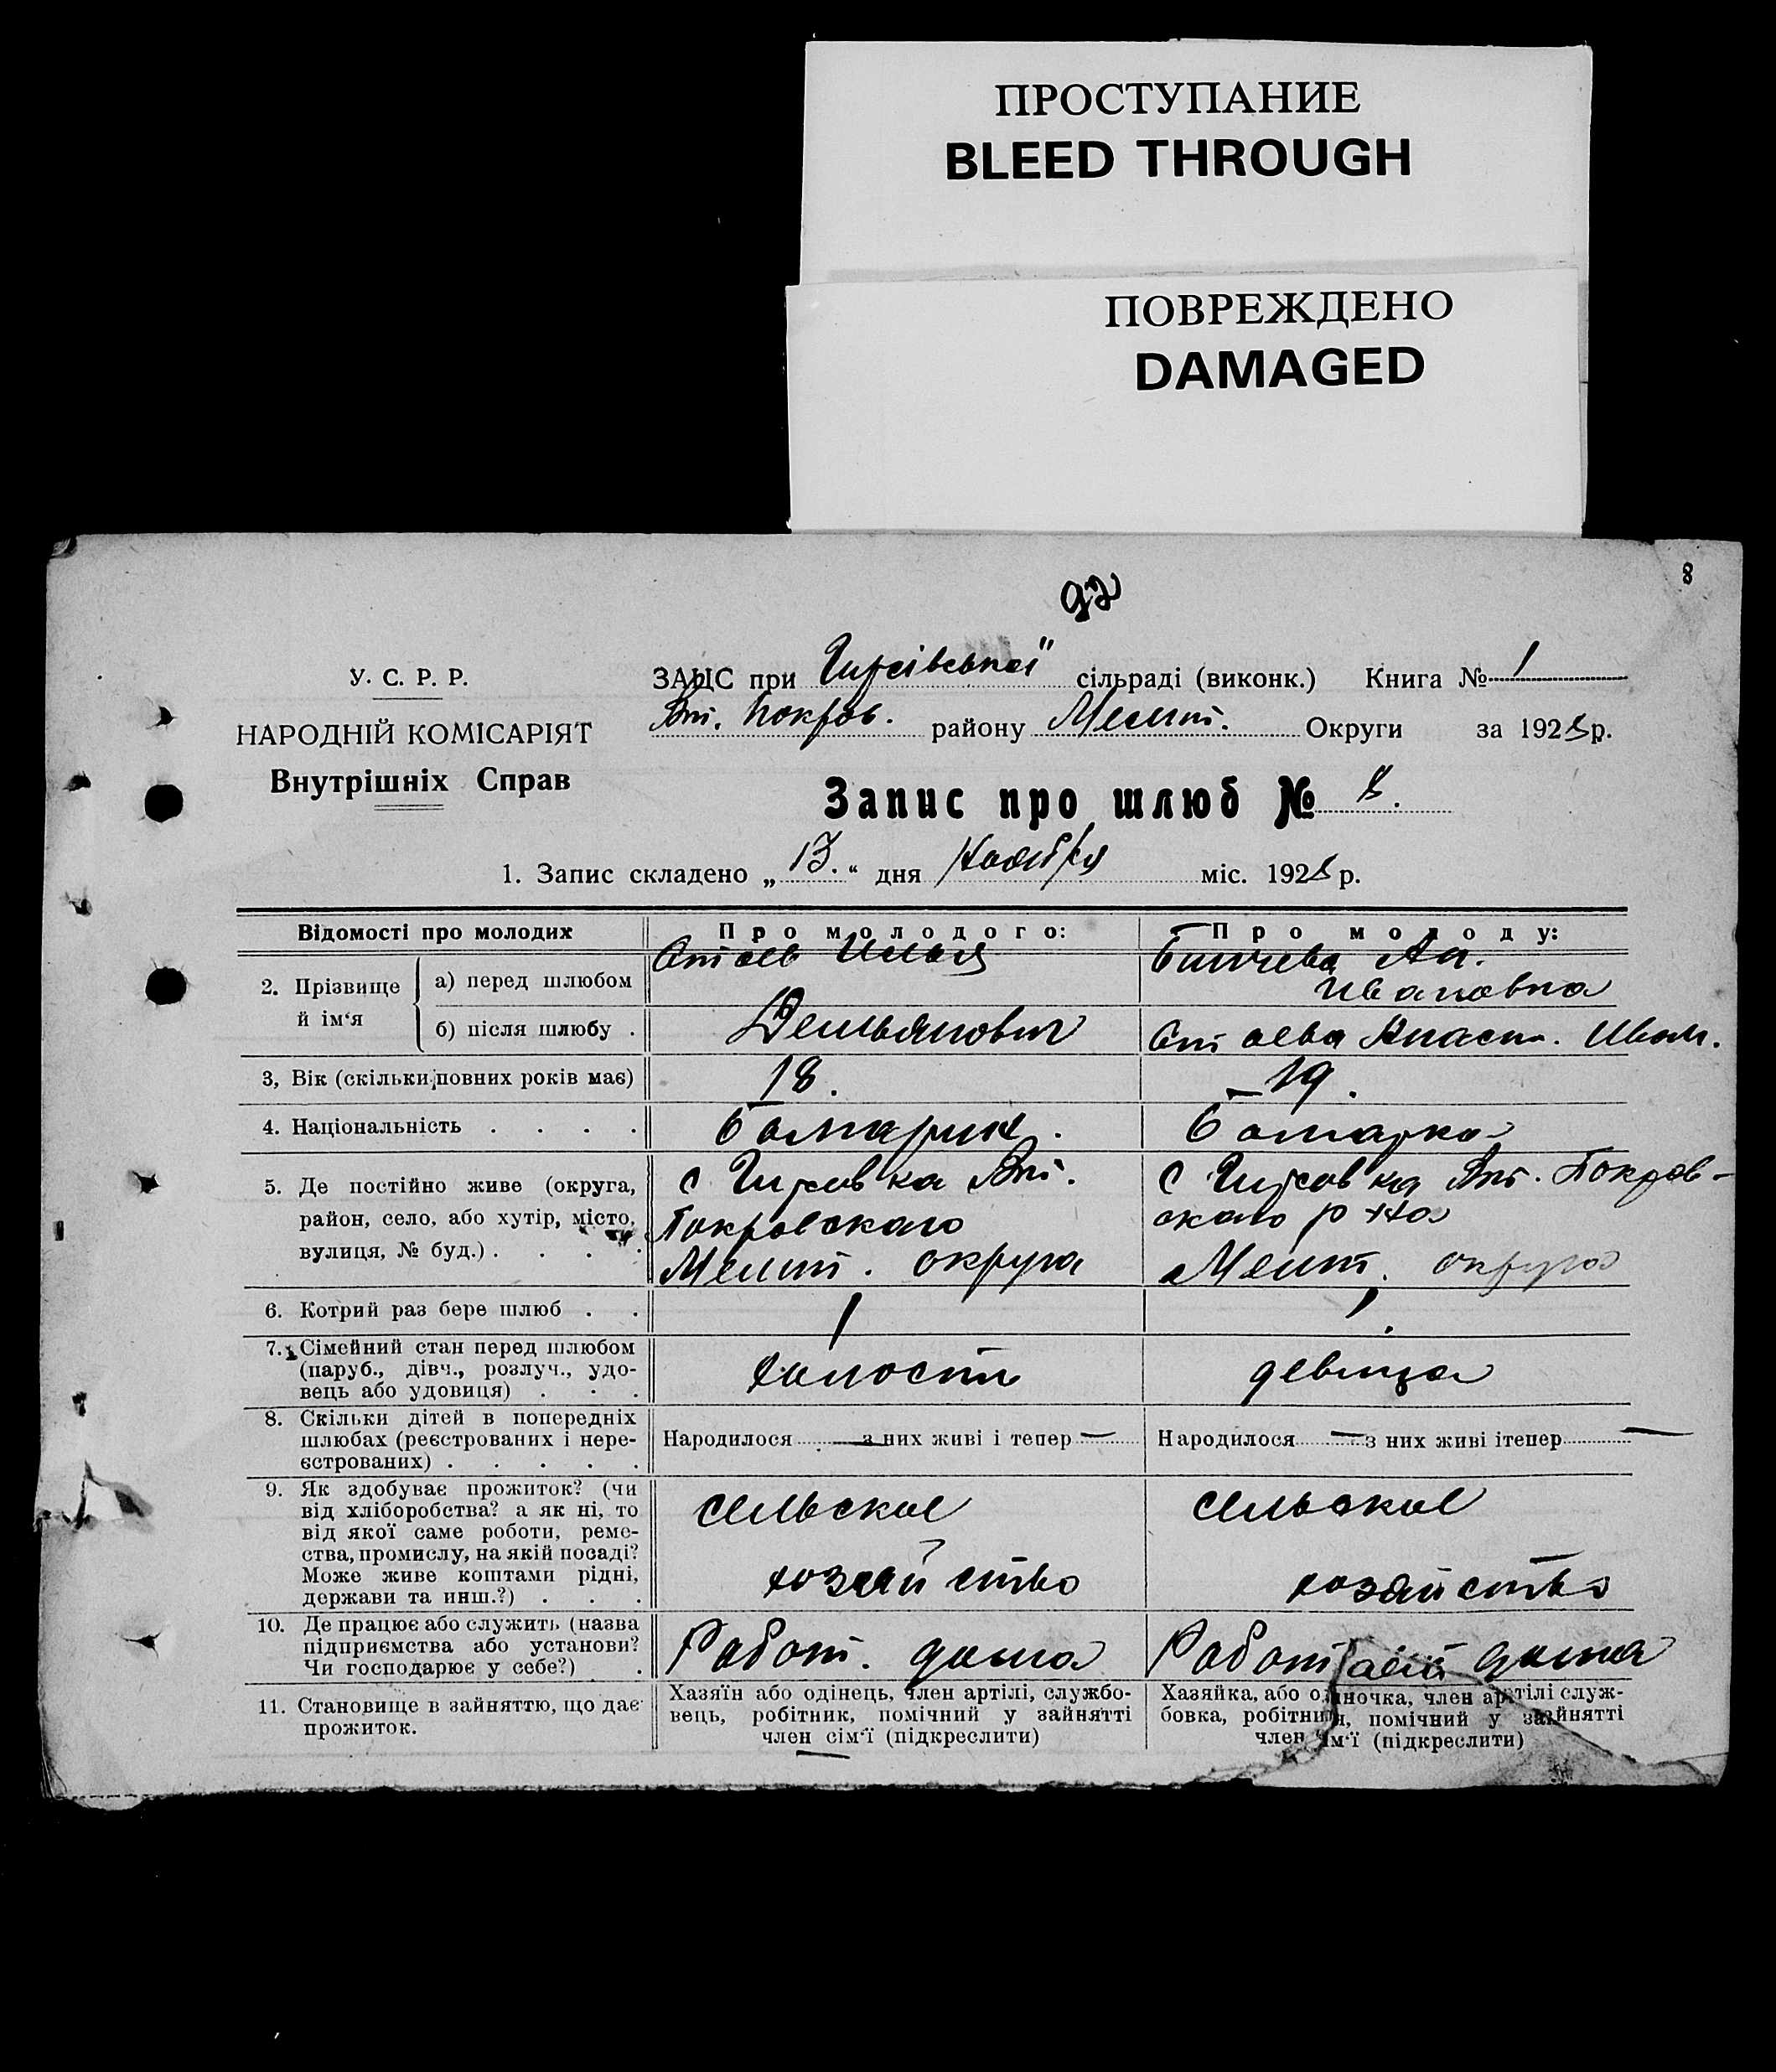 ПРОСТУПАНИЕ
BLEED THROUGH
ПОВРЕЖДЕНО
DAMAGED
8
92
У. С. Р. Р.
НАРОДНІЙ КОМІСАРІЯТ
Внутрішніх Справ
ЗАЦС при Гирсівської сільраді (виконк.) Книга № 1
Вт. Покров. району Мелит. Округи за 1928 р.
Запис про шлюб № 8.
1. Запис складено „13.“ дня Ноября міс. 1928 р.
Відомості про молодих
Про молодого:
Про молоду:
2. Прізвище й ім‘я
а) перед шлюбом
Илья
Ан.
Ивановна
б) після шлюбу .
Демьянович
Анаст. Иван.
3, Вік (скільки повних років має)
18.
19.
4. Національність . . . .
Болгарин.
Болгарка
5. Де постійно живе (округа,
район, село, або хутір, місто,
вулиця, № буд.) . . . .
с Гирсовка Вт.
Покровского
Мелит. округа
с Гирсовка Вт. Покров-
ского р-на
Мелит. округа
6. Котрий раз бере шлюб . .
1
1.
7. Сімейний стан перед шлюбом
(паруб., дівч., розлуч., удо-
вець або удовиця) . . .
холост
девица
8. Скільки дітей в попередніх
шлюбах (реєстрованих і нере-
єстрованих) . . . . .
Народилося — з них живі і тепер —
Народилося — з них живі ітепер —
9. Як здобуває прожиток? (чи
від хліборобства? а як ні, то
від якої саме роботи, реме-
ства, промислу, на якій посаді?
Може живе коштами рідні,
держави та инш.?) . . .
сельское
хозяйство
сельское
хозяйство
10. Де працює або служить (назва
підприємства або установи?
Чи господарює у себе?) .
Работ. дома
Работает дома
11. Становище в зайняттю, що дає
прожиток.
Хазяїн або одінець, член артілі, службо-
вець, робітник, помічний у зайнятті
член сім‘ї (підкреслити)
Хазяйка, або одиночка, член артілі служ-
бовка, робітниця, помічний у зайнятті
член сім‘ї (підкреслити)